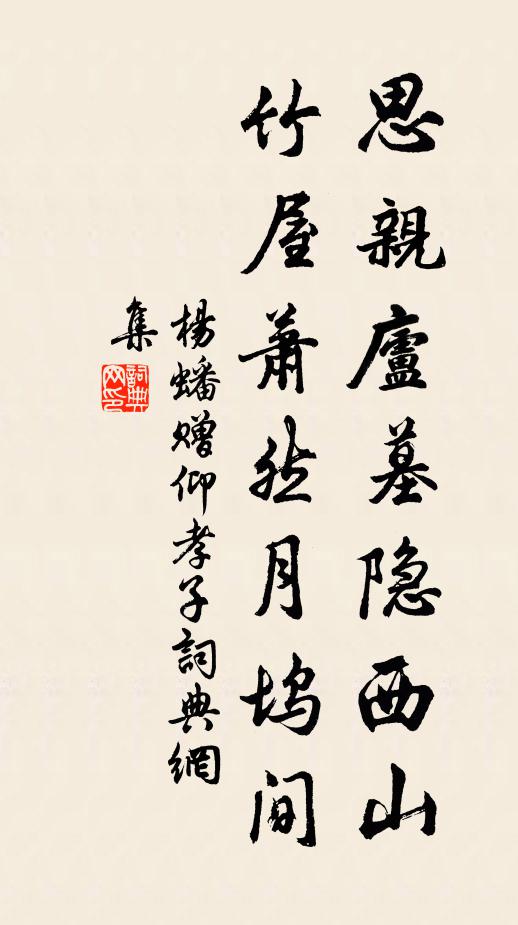 思親廬墓隐西山
竹屋蕭然月坞間
楊蟠赠仰孝子詞典網
集
詞典网印